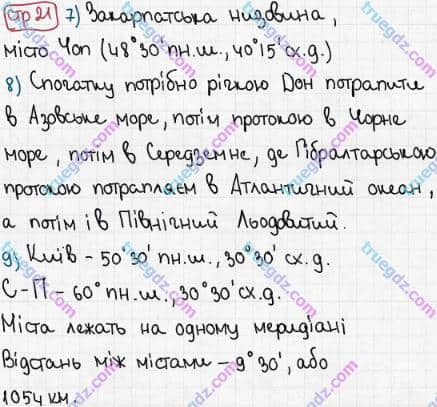 Стр 21 7) Закарпатська низовина,
місто Чоп (48°30' пн.ш., 40°15' сх.д.)
8) Спочатку потрібно річкою Дон потрапити
в Азовське море, потім протокою в Чорне
море, потім в Середземне, де Гібралтарською
протокою потрапляєм в Атлантичний океан,
а потім і в Північний Льодовитий.
9) Київ – 50°30' пн.ш., 30°30' сх.д.
С-П – 60° пн.ш., 30°30' сх.д.
Міста лежать на одному меридіані
Відстань між містами – 9°30', або
1054 км.
truegdz.com